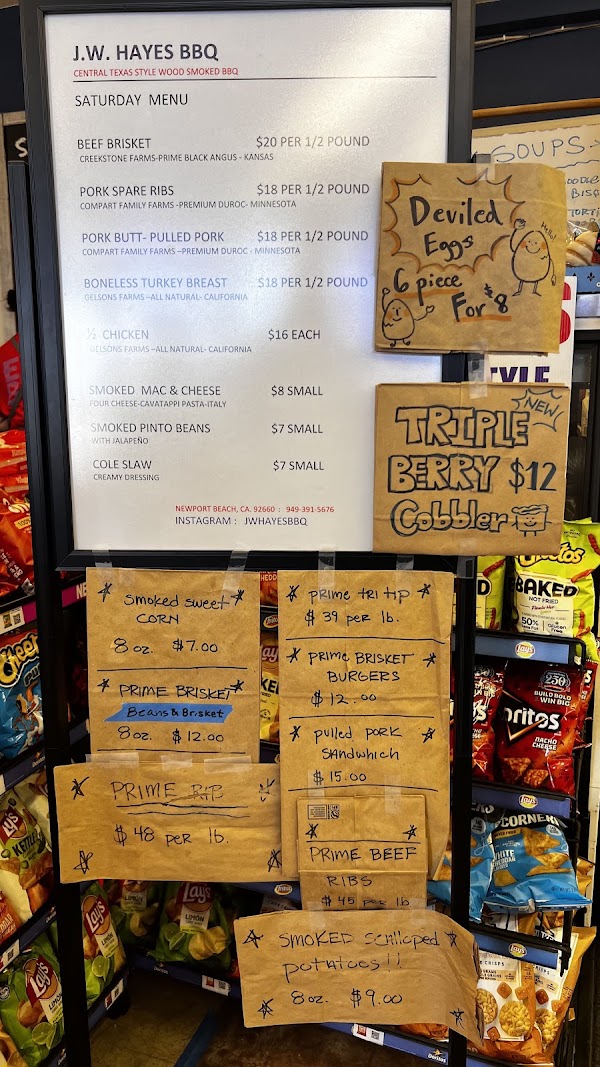 J.W. HAYES BBQ
CENTRAL TEXAS STYLE WOOD SMOKED BBQ
SATURDAY MENU
BEEF BRISKET $20 PER 1/2 POUND
CREEKSTONE FARMS-PRIME BLACK ANGUS - KANSAS
PORK SPARE RIBS $18 PER 1/2 POUND
COMPART FAMILY FARMS -PREMIUM DUROC- MINNESOTA
PORK BUTT- PULLED PORK $18 PER 1/2 POUND
COMPART FAMILY FARMS –PREMIUM DUROC - MINNESOTA
BONELESS TURKEY BREAST $18 PER 1/2 POUND
GELSONS FARMS –ALL NATURAL- CALIFORNIA
½ CHICKEN $16 EACH
GELSONS FARMS –ALL NATURAL- CALIFORNIA
SMOKED MAC & CHEESE $8 SMALL
FOUR CHEESE-CAVATAPPI PASTA-ITALY
SMOKED PINTO BEANS $7 SMALL
WITH JALAPEÑO
COLE SLAW $7 SMALL
CREAMY DRESSING
NEWPORT BEACH, CA. 92660 : 949-391-5676
INSTAGRAM : JWHAYESBBQ
SOUPS
Deviled
Eggs
6 piece
For $8
Hello!
NEW
TRIPLE
BERRY $12
Cobbler
Smoked sweet
CORN
8 oz. $7.00
PRIME BRISKET
Beans & Brisket
8 oz. $12.00
PRIME RIB
$48 per lb.
PRIME TRI TIP
$39 per lb.
PRIME BRISKET
BURGERS
$12.00
pulled pork
SANdwhich
$15.00
PRIME BEEF
RIBS
$45 per lb
SMOKED Scilloped
potatoes!!
8 oz. $9.00
BAKED
NOT FRIED
50%
Lay's
BUILD BOLD
WIN BIG
Doritos
NACHO
CHEESE
Lay's
Lay's
KETTLE
Lay's
LIMÓN
Lay's
LIMÓN
Lay's
Lay's